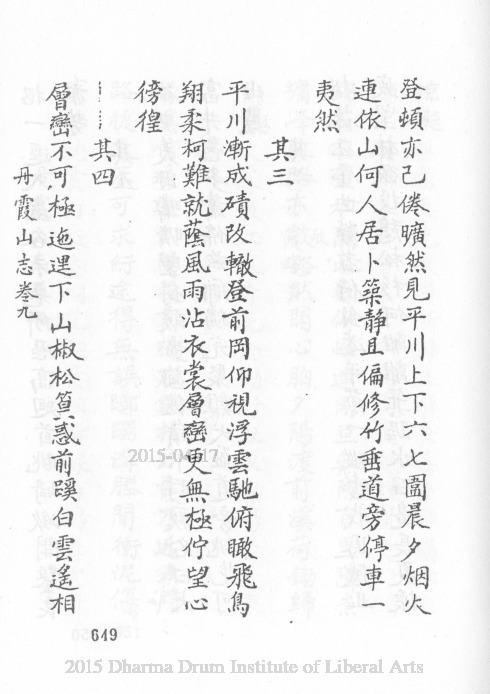 登頓亦已倦曠然見平川上下六七圖晨夕烟火
連依山何人居卜築靜且偏修竹垂道旁停車一
夷然
其三
平川漸成磧改轍登前岡仰視浮雲馳俯瞰飛鳥
翔柔柯難就蔭風雨沾衣裳層巒更無極佇望心
徬徨
其四
層巒不可極迤邐下山椒松篁惑前蹊白雲遙相
丹霞山志卷九
649
2015-04-17
2015 Dharma Drum Institute of Liberal Arts